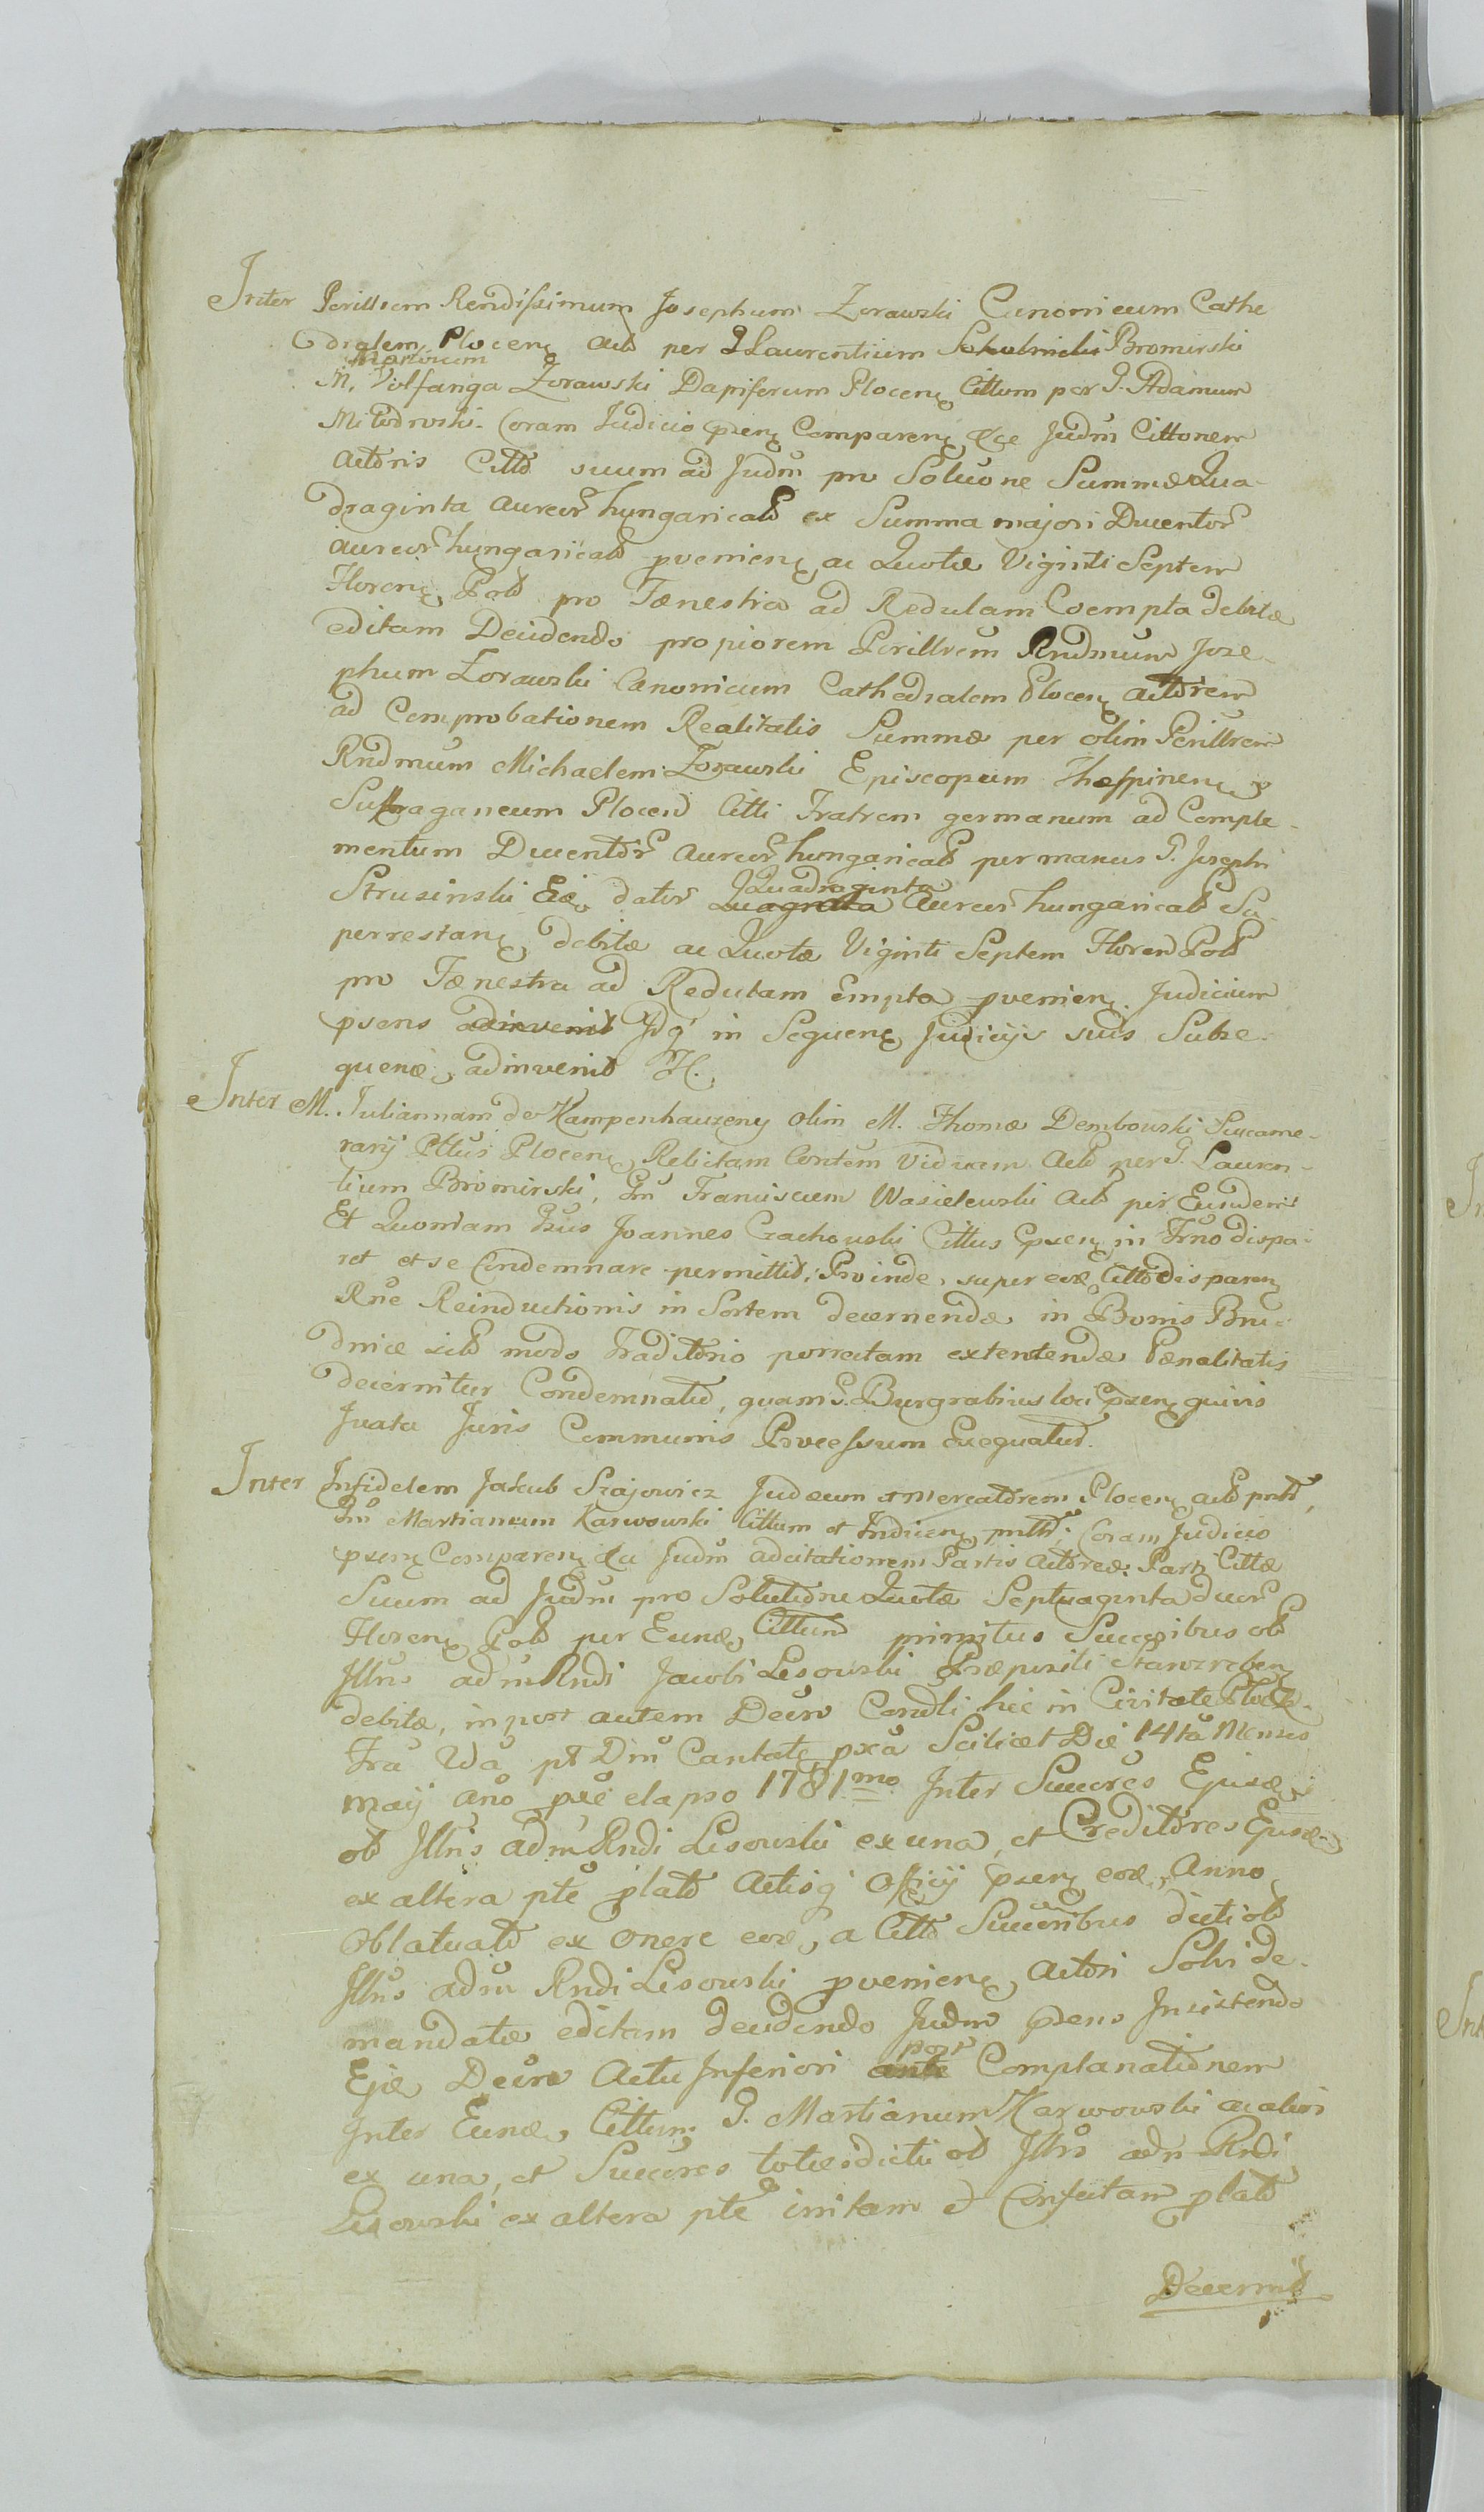 Inter Perillrem Rendissimum Josephum Zorawski Canonicum Cathe
dralem Plocen Actor per G Laurentium Bromirski
Martinum
M. Volfanga Zorawski Dapiferum Plocen Cittum per G. Adamum
Miłodrowski. Coram Judicio psen Comparen &ce Judm Cittonem
actoris Citto suum ad Judm pro Soluone Summæ Qua-
draginta aureor hungaricab ex Summa majori Ducentor
aureor hungaricab pvenien, ac Quotæ Viginti Septem
Floren, Pol pro Fænestra ad Redutam Coempta debitæ
editam Decidendo propiorem Perillrem Rndmum Jose-
phum Zorawski Canonicum Cathedralem Plocen actorem
ad Comprobationem Realitatis Summæ per olim Perillrem
Rndmum Michaelem Zorawski Episcopum Thespinen,
Suffraganeum Plocen Citti Fratrem germanum ad Comple-
mentum Ducentor aureor hungaricab per manus G. Josephi
Strusinski Eid dator Quadraginta aureor hungaricab Su-
perrestan, debitæ ac Quotæ Viginti Septem Floren Pol
pro Fænestra ad Redutam Empta pvenien. Judicium
psens adinvenit Jdq in Sequen, Judicijs suis Subse-
quenė, adinvenit H.
Inter M. Juliannam de Kampenhauzeny olim M. Thomæ Dembowski Succame-
rarij Pttus Plocen, Relictam Contem Viduam Act per G. Lauren-
tium Bromirski, Gm Franciscum Wasielewski Act per Eundem
Et Quoniam Gsus Joannes Czachowski Cittus Cpsen, in Trno dispa-
ret et se Condemnare permittit. Proinde, super eod, Citto disparen
Rne Reinductionis in Sortem decernendæ, in Bonis Bru-
dnice sibi modo Traditorio porrectam extentendæ Pænalitatis
decernitur Condemnatio, quam G. Burgrabius loci psen, quivis
Juxta Juris Communis Processum Exequatur.
Inter Infidelem Jakub Szajowicz Judæum et Mercatorem Plocen, act pntt,
Gm Martianum Karwowski Cittum et Inducen, pntt. Coram Judicio
psen, Comparen &ce Judm adcitationem Partis actoreæ. Parti Cittæ
Suum ad Judm pro Solutione Quotæ Septuaginta duor
Floren, Pol per Eund, Cittum primitus Succesoribus ob
Jllris adm Rndi Jacobi Lisowski Præpositi
debitæ, in post autem Decro Condli hic in Civitate Plocen
Fra 2da pt Dm Cantate, pxa Scilicet Die 14ta Mensis
May ano pxe elapso 1781mo Inter Succres Ejusd,
ob Jllris adm Rndi Lisowski ex una, et Creditores Ejusd,
ex altera pte plato Actisq Officij psen, eod, Anno
Oblatuato ex onere eod, a Citto Succribus dicti ob
Jllris adm Rndi Lisowski pvenien, Actori Solvi de-
mandatæ editam decidendo Judm psens Insistendo
post
Ejd, Decro Actu Inferiori Complanationem
Inter Eund, Cittum G. Martianum Karwowski ac alios
ex una, et Succres totiesdicti ob Jllris adm Rndi
Lisowski ex altera pte initam & Confectam plato
Decernit